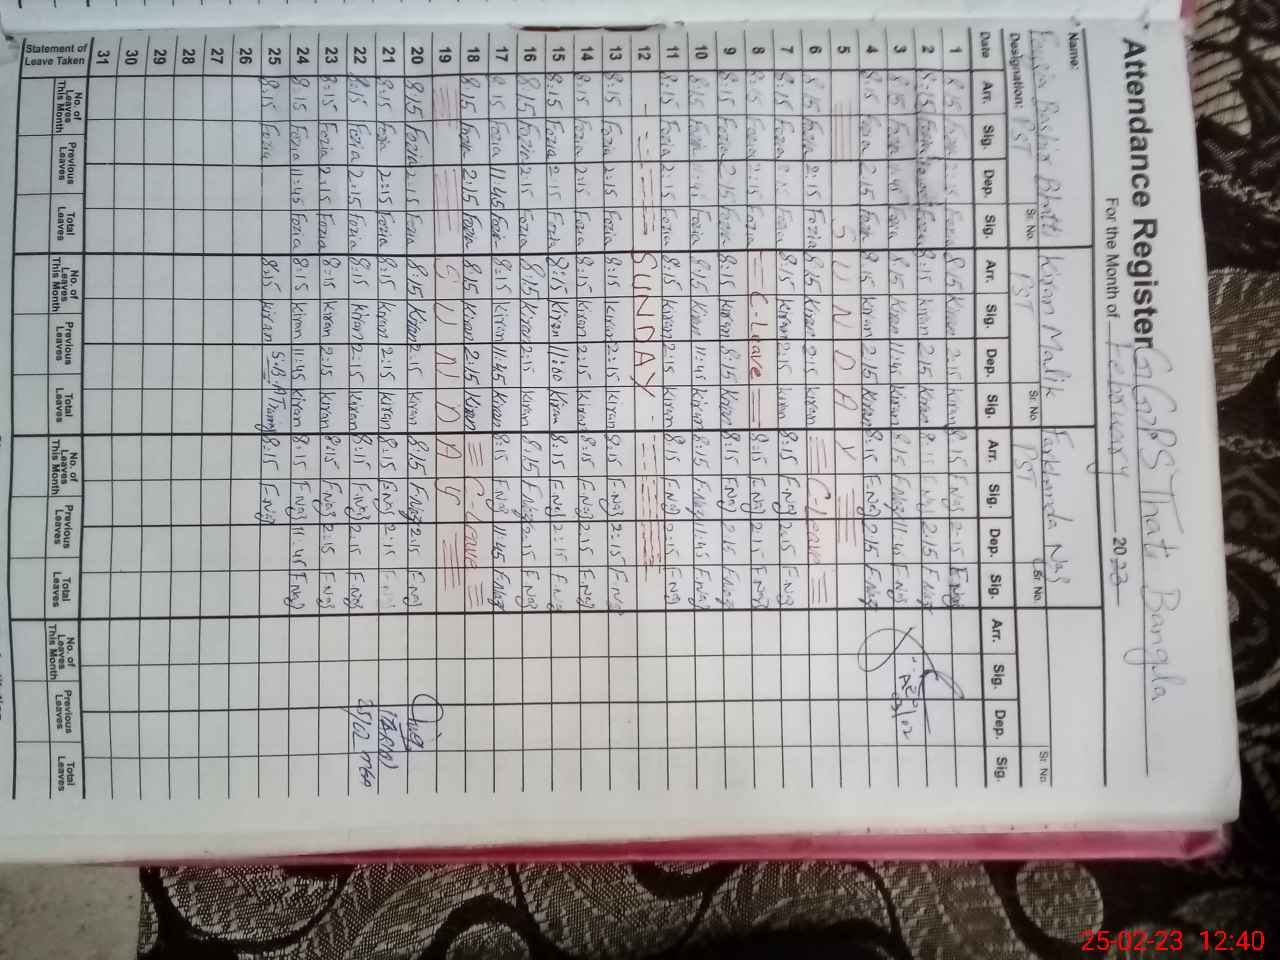 Attendance Register G.G.P.S Thati Bangla
For the Month of February 2023
Name: Fozia Bashir Bhatti Kiran Malik Farkhanda Naz
Sr. No. Sr. No. Sr. No. Sr. No.
Designation: PST PST PST
Date Arr. Sig. Dep. Sig. Arr. Sig. Dep. Sig. Arr. Sig. Dep. Sig. Arr. Sig. Dep. Sig.
1 8:15 Fozia 2:15 Fozia 8:15 Kiran 2:15 Kiran 8:15 F.Naz 2:15 F.Naz
2 8:15 Fozia Fozia 8:15 Kiran 2:15 Kiran 8:15 F.Naz 2:15 F.Naz
3 8:15 Fozia 11:45 Fozia 8:15 Kiran 11:45 Kiran 8:15 F.Naz 11:45 F.Naz
4 8:15 Fozia 2:15 Fozia 8:15 Kiran 2:15 Kiran 8:15 F.Naz 2:15 F.Naz
5 S U N D A Y
6 8:15 Fozia 2:15 Fozia 8:15 Kiran 2:15 Kiran C-Leave
7 8:15 Fozia 2:15 Fozia 8:15 Kiran 2:15 Kiran 8:15 F.Naz 2:15 F.Naz
8 8:15 Fozia 2:15 Fozia C-Leave 8:15 F.Naz 2:15 F.Naz
9 8:15 Fozia 2:15 Fozia 8:15 Kiran 8:15 Kiran 8:15 F.Naz 2:15 F.Naz
10 8:15 Fozia 11:45 Fozia 8:15 Kiran 11:45 Kiran 8:15 F.Naz 11:45 F.Naz
11 8:15 Fozia 2:15 Fozia 8:15 Kiran 2:15 Kiran 8:15 F.Naz 2:15 F.Naz
12 SUNDAY
13 8:15 Fozia 2:15 Fozia 8:15 Kiran 2:15 Kiran 8:15 F.Naz 2:15 F.Naz
14 8:15 Fozia 2:15 Fozia 8:15 Kiran 2:15 Kiran 8:15 F.Naz 2:15 F.Naz
15 8:15 Fozia 2:15 Fozia 8:15 Kiran 11:00 Kiran 8:15 F.Naz 2:15 F.Naz
16 8:15 Fozia 2:15 Fozia 8:15 Kiran 2:15 Kiran 8:15 F.Naz 2:15 F.Naz
17 8:15 Fozia 11:45 Fozia 8:15 Kiran 11:45 Kiran 8:15 F.Naz 11:45 F.Naz
18 8:15 Fozia 2:15 Fozia 8:15 Kiran 2:15 Kiran C-Leave
19 S U N D A Y
20 8:15 Fozia 2:15 Fozia 8:15 Kiran 2:15 Kiran 8:15 F.Naz 2:15 F.Naz
21 8:15 Fozia 2:15 Fozia 8:15 Kiran 2:15 Kiran 8:15 F.Naz 2:15 F.Naz
22 8:15 Fozia 2:15 Fozia 8:15 Kiran 2:15 Kiran 8:15 F.Naz 2:15 F.Naz
23 8:15 Fozia 2:15 Fozia 8:15 Kiran 2:15 Kiran 8:15 F.Naz 2:15 F.Naz
24 8:15 Fozia 11:45 Fozia 8:15 Kiran 11:45 Kiran 8:15 F.Naz 11:45 F.Naz
25 8:15 Fozia 8:15 Kiran S.B.A Traing 8:15 F.Naz
26
27
28
29
30
31
Statement of Leave Taken No. of Leaves This Month Previous Leaves Total Leaves No. of Leaves This Month Previous Leaves Total Leaves No. of Leaves This Month Previous Leaves Total Leaves No. of Leaves This Month Previous Leaves Total Leaves
25-02-23 12:40